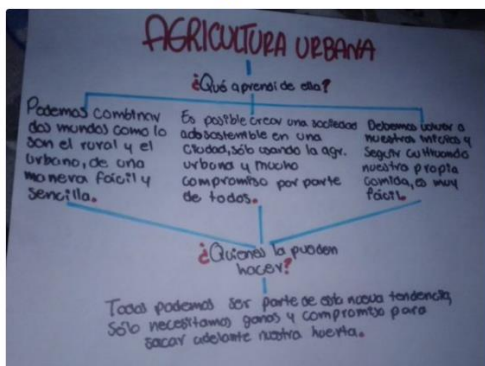 AGRICULTURA URBANA
¿Qué aprendí de ella?
Podemos combinar
dos mundos como lo
son el rural y el
urbano, de una
manera fácil y
sencilla.
Es posible crear una sociedad
autosostenible en una
ciudad, sólo usando la agr.
urbana y mucho
compromiso por parte
de todos.
Debemos volver a
nuestros inicios y
seguir cultivando
nuestra propia
comida, es muy
fácil.
¿Quienes la pueden
hacer?
Todos podemos ser parte de esta nueva tendencia,
sólo necesitamos ganas y compromiso para
sacar adelante nuestra huerta.